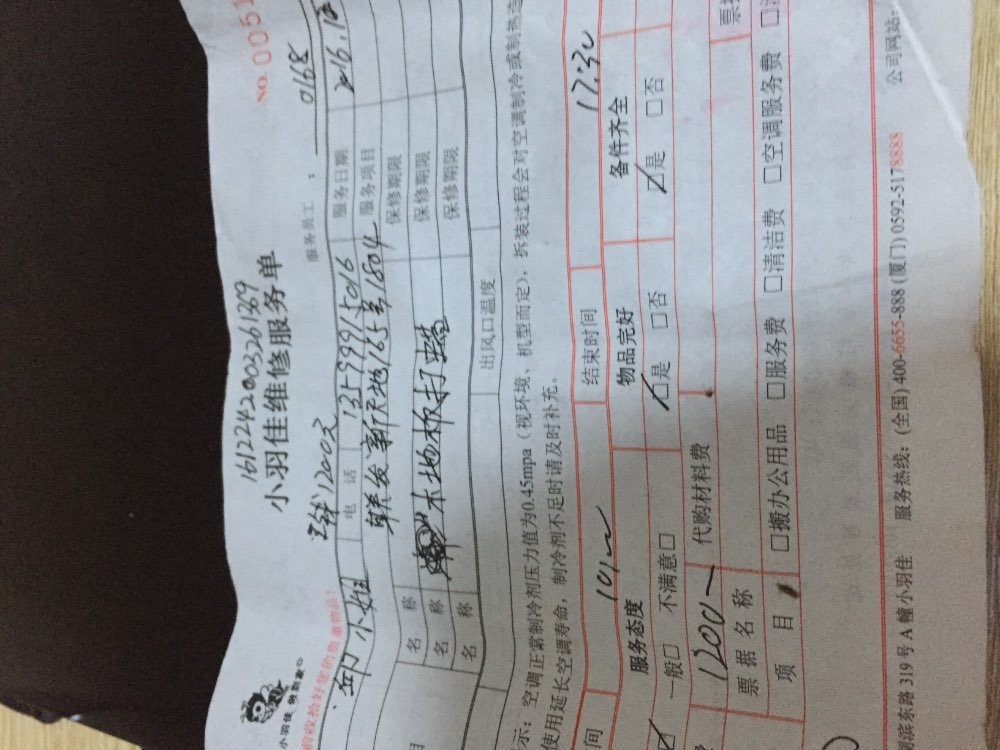 NO. 0051
1612242003261369
小羽佳维修服务单
小羽佳 能动象®
前收拾好您的贵重物品!
现1200元
服务员工: 0168
小姐 电话 13599515016 服务日期 216.12
新天地165号1804 服务项目
名称 保修期限
名称 木地板打蜡 保修期限
名称 保修期限
出风口温度
示:空调正常制冷剂压力值为0.45mpa(视环境、机型而定),拆装过程会对空调制冷或制热造
使用延长空调寿命,制冷剂不足时请及时补充。
间 结束时间 17:30
服务态度 物品完好 备件齐全
一般□ 不满意□ ☑是 □否 ☑是 □否
1200 代购材料费
票据名称 票
项目 □搬办公用品 □服务费 □清洁费 □空调服务费
滨东路319号A幢小羽佳 服务热线:(全国)400-6655-888 (厦门)0592-5178888 公司网站: